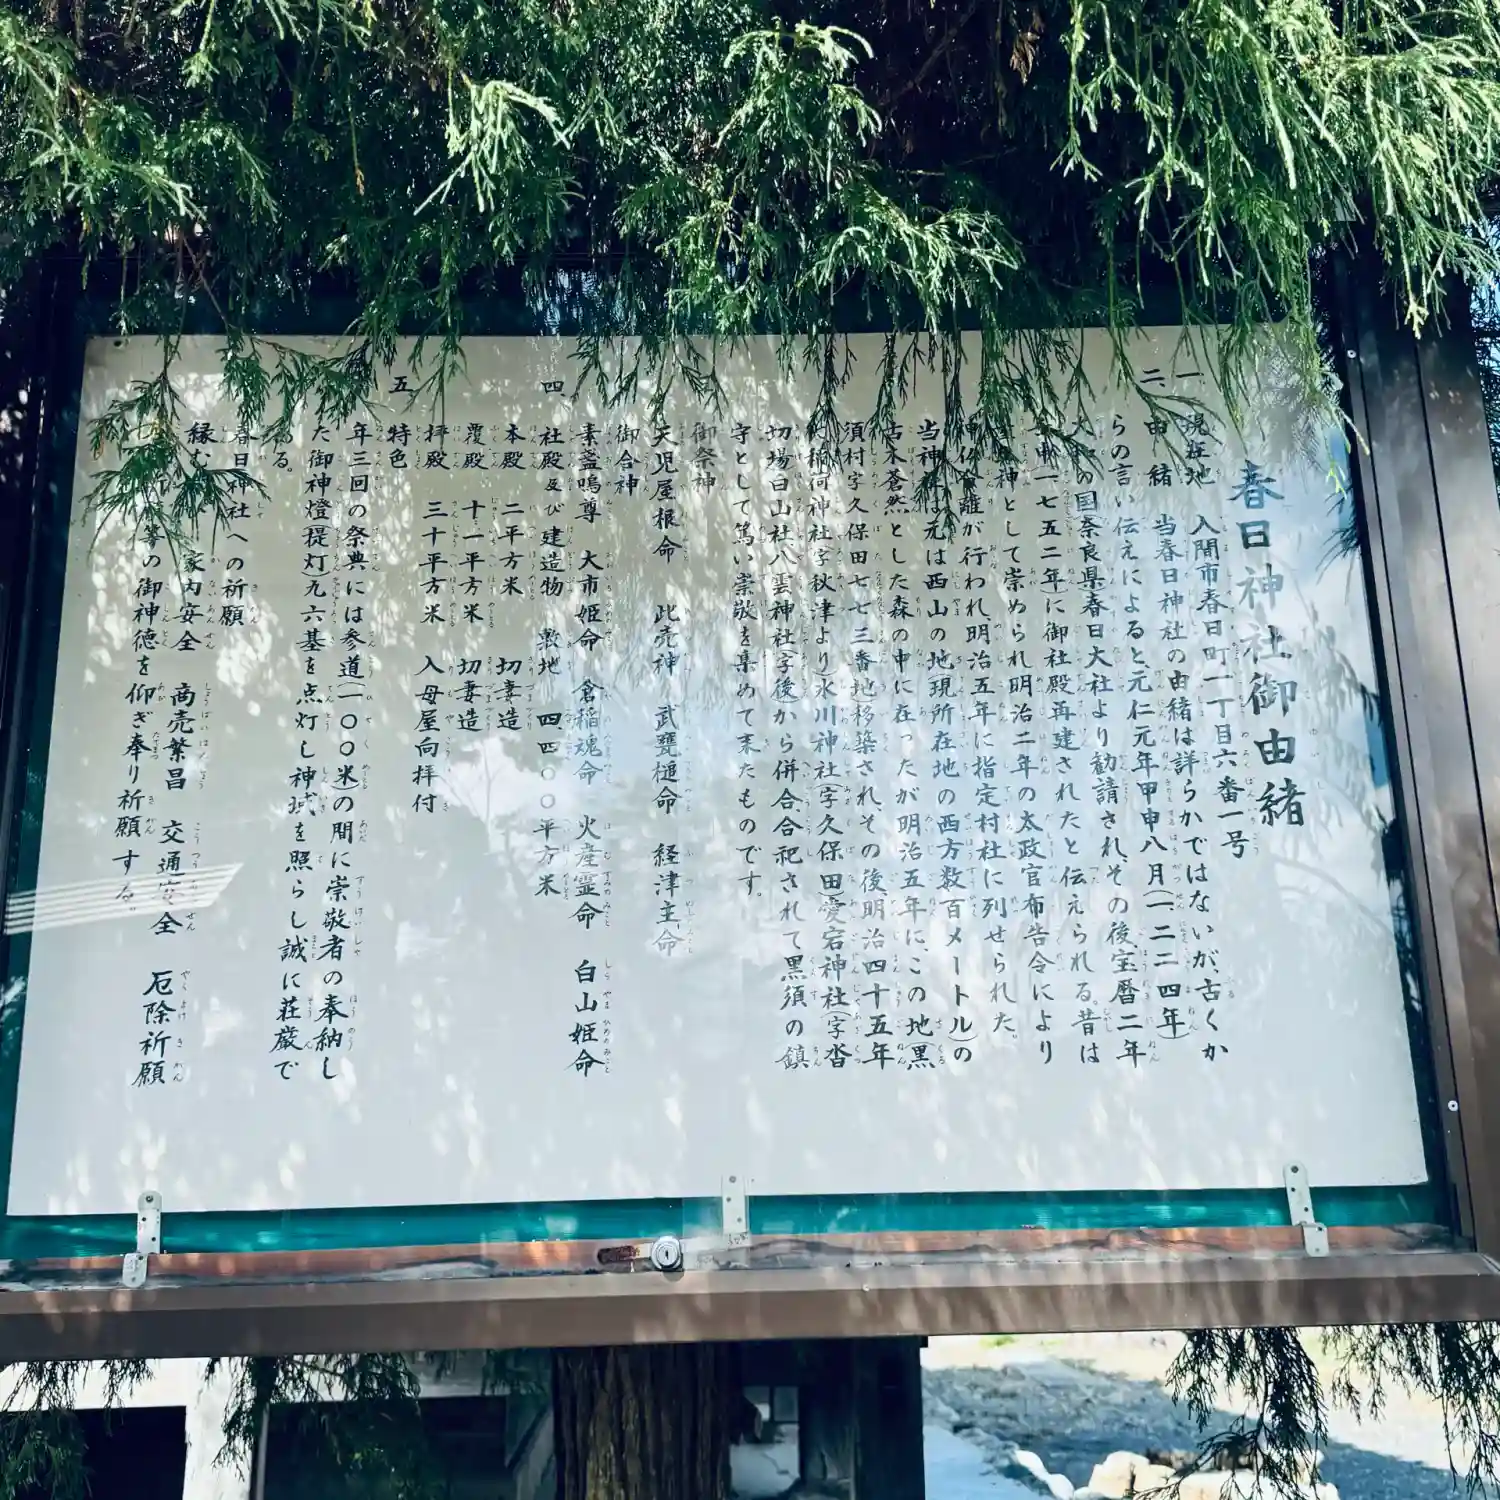 春日神社御由緒
一、現在地 入間市春日町一丁目六番一号
二、由緒 当春日神社の由緒は詳らかではないが、古くか
らの言い伝えによると、元仁元年甲申八月(一二二四年)
の国奈良県春日大社より勧請され、その後、宝暦二年
申(一七五二年)に御社殿再建されたと伝えられる。昔は
神として崇められ明治二年の太政官布告令により
神仏分離が行われ、明治五年に指定村社に列せられた。
当神社は元は西山の地現所在地の西方数百メートル)の
古木蒼然とした森の中に在ったが明治五年に、この地(黒
須村字久保田七七三番地移築され、その後、明治四十五年
稲荷神社字秋津より)氷川神社(字久保田)愛宕神社(字沓
切場白山社八雲神社(字後)から併合合祀されて黒須の鎮
守として篤い崇敬を集めて来たものです。
御祭神
天児屋根命 比売神 武甕槌命 経津主命
御合神
素盞嗚尊 大市姫命 倉稲魂命 火産霊命 白山姫命
四、社殿及び建造物 敷地 四、四〇〇平方米
本殿 二平方米 切妻造
覆殿 十一平方米 切妻造
拝殿 三十平方米 入母屋向拝付
五 特色
年三回の祭典には参道(一〇〇米)の間に崇敬者の奉納し
た御神燈提灯)九六基を点灯し神域を照らし誠に荘厳で
る。
春日神社への祈願
縁む 家内安全 商売繁昌 交通安全 厄除祈願
等の御神徳を仰ぎ奉り祈願する。